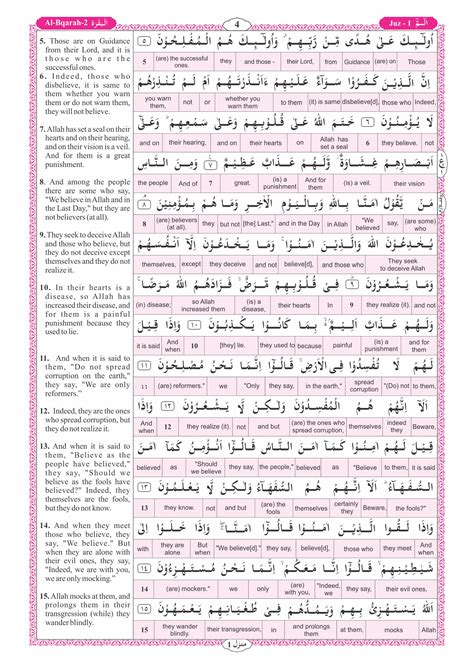 Al-Bqarah-2 البقرة ٢
4
Juz - 1 الٓمّٓ ١
5. Those are on Guidance
from their Lord, and it is
those who are the
successful ones.
6. Indeed, those who
disbelieve, it is same to
them whether you warn
them or do not warn them,
they will not believe.
7. Allah has set a seal on their
hearts and on their hearing,
and on their vision is a veil.
And for them is a great
punishment.
8. And among the people
there are some who say,
"We believe in Allah and in
the Last Day," but they are
not believers (at all).
9. They seek to deceive Allah
and those who believe, but
they do not deceive except
themselves and they do not
realize it.
10. In their hearts is a
disease, so Allah has
increased their disease, and
for them is a painful
punishment because they
used to lie.
11. And when it is said to
them, "Do not spread
corruption on the earth,"
they say, "We are only
reformers."
12. Indeed, they are the ones
who spread corruption, but
they do not realize it.
13. And when it is said to
them, "Believe as the
people have believed,"
they say, "Should we
believe as the fools have
believed?" Indeed, they
themselves are the fools,
but they do not know.
14. And when they meet those
who believe, they say, "We
believe." But when they
are alone with their evil
ones, they say, "Indeed, we
are with you, we are only
mocking."
15. Allah mocks at them, and
prolongs them in their
transgression (while) they
wander blindly.
أُولَٰٓئِكَ عَلَىٰ هُدًى مِّن رَّبِّهِمْ ۖ وَأُولَٰٓئِكَ هُمُ الْمُفْلِحُوْنَ ٥
Those (are) on Guidance from their Lord, and those - they (are) the successful ones. 5
اِنَّ الَّذِيْنَ كَفَرُوْا سَوَآءٌ عَلَيْهِمْ ءَاَنْذَرْتَهُمْ اَمْ لَمْ تُنْذِرْهُمْ
Indeed, those who disbelieve[d], (it) is same to them whether you warn them or not you warn them,
لَا يُؤْمِنُوْنَ ٦ خَتَمَ اللّٰهُ عَلٰى قُلُوْبِهِمْ وَعَلٰى سَمْعِهِمْ ؕ وَعَلٰٓى
not they believe. 6 Allah has set a seal on their hearts and on their hearing, and on
اَبْصَارِهِمْ غِشَاوَةٌ وَّلَهُمْ عَذَابٌ عَظِيْمٌ ٧ وَمِنَ النَّاسِ
their vision (is) a veil. And for them (is) a punishment great. 7 And of the people
مَنْ يَّقُوْلُ اٰمَنَّا بِاللّٰهِ وَبِالْيَوْمِ الْاٰخِرِ وَمَا هُمْ بِمُؤْمِنِيْنَ ٨
(are some) who say, "We believed in Allah and in the Day [the] Last," but not they (are) believers (at all). 8
يُخٰدِعُوْنَ اللّٰهَ وَالَّذِيْنَ اٰمَنُوْا ۚ وَمَا يَخْدَعُوْنَ اِلَّآ اَنْفُسَهُمْ
They seek to deceive Allah and those who believe[d], and not they deceive except themselves,
وَمَا يَشْعُرُوْنَ ٩ فِيْ قُلُوْبِهِمْ مَّرَضٌ ۙ فَزَادَهُمُ اللّٰهُ مَرَضًا ۚ
and not they realize (it). 9 In their hearts (is) a disease, so Allah increased them (in) disease;
وَلَهُمْ عَذَابٌ اَلِيْمٌۢ ۙ بِمَا كَانُوْا يَكْذِبُوْنَ ١٠ وَاِذَا قِيْلَ
and for them (is) a punishment painful because they used to [they] lie. 10 And when it is said
لَهُمْ لَا تُفْسِدُوْا فِي الْاَرْضِ ۙ قَالُوْٓا اِنَّمَا نَحْنُ مُصْلِحُوْنَ ١١
to them, "(Do) not spread corruption in the earth," they say, "Only we (are) reformers." 11
اَلَآ اِنَّهُمْ هُمُ الْمُفْسِدُوْنَ وَلٰكِنْ لَّا يَشْعُرُوْنَ ١٢ وَاِذَا
Beware, indeed they themselves (are) the ones who spread corruption, but not they realize (it). 12 And when
قِيْلَ لَهُمْ اٰمِنُوْا كَمَآ اٰمَنَ النَّاسُ قَالُوْٓا اَنُؤْمِنُ كَمَآ اٰمَنَ
it is said to them, "Believe as believed the people," they say, "Should we believe as believed
السُّفَهَآءُ ؕ اَلَآ اِنَّهُمْ هُمُ السُّفَهَآءُ وَلٰكِنْ لَّا يَعْلَمُوْنَ ١٣
the fools?" Beware, certainly they themselves (are) the fools and but not they know. 13
وَاِذَا لَقُوا الَّذِيْنَ اٰمَنُوْا قَالُوْٓا اٰمَنَّا ۚ وَاِذَا خَلَوْا اِلٰى
And when they meet those who believe[d], they say, "We believe[d]." But when they are alone with
شَيٰطِيْنِهِمْ ۙ قَالُوْٓا اِنَّا مَعَكُمْ ۙ اِنَّمَا نَحْنُ مُسْتَهْزِءُوْنَ ١٤
their evil ones, they say, "Indeed, we (are) with you, only we (are) mockers." 14
اَللّٰهُ يَسْتَهْزِئُ بِهِمْ وَيَمُدُّهُمْ فِيْ طُغْيَانِهِمْ يَعْمَهُوْنَ ١٥
Allah mocks at them, and prolongs them in their transgression, they wander blindly. 15
منزل ١